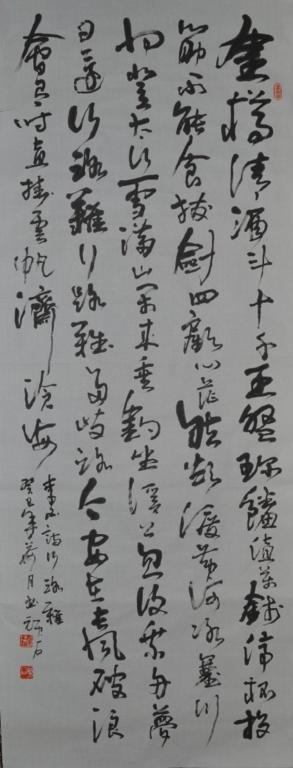 金樽清酒斗十千玉盤珍饈值萬錢停杯投
筯不能食拔劍四顧心茫然欲渡黃河冰塞川
将登太行雪滿山閒來垂釣坐溪上忽復乘舟夢
日邊行路難行路難多歧路今安在長風破浪
會有時直掛雲帆濟滄海
李白詩行路難
癸巳年荷月書